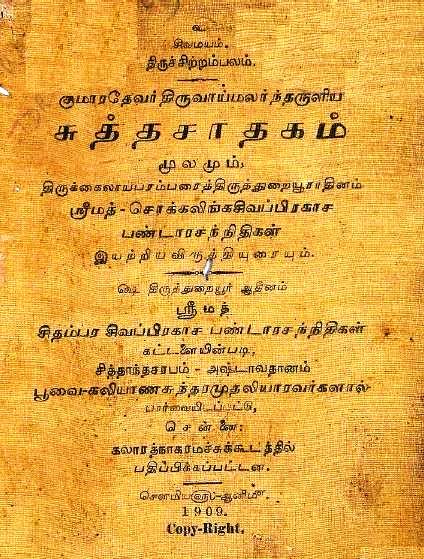 ௳
சிவமயம்.
திருச்சிற்றம்பலம்.
குமாரதேவர் திருவாய்மலர்ந்தருளிய
சுத்தசாதகம்
மூலமும்,
திருக்கைலாயபரம்பரைத்திருத்துறையூராதினம்
ஸ்ரீமத் - சொக்கலிங்கசிவப்பிரகாச
பண்டாரசந்நிதிகள்
இயற்றிய விருத்தியுரையும்.
ஷெ திருத்துறையூர் ஆதினம்
ஸ்ரீமத்
சிதம்பர சிவப்பிரகாச பண்டாரசந்நிதிகள்
கட்டளையின்படி,
சித்தாந்தசரபம் - அஷ்டாவதானம்
பூவை-கலியாணசுந்தரமுதலியாரவர்களால்
பார்வையிடப்பட்டு,
சென்னை:
கலாரத்நாகரமச்சுக்கூடத்தில்
பதிப்பிக்கப்பட்டன.
சௌமியவரு-ஆனிமீ.
1909.
Copy-Right.